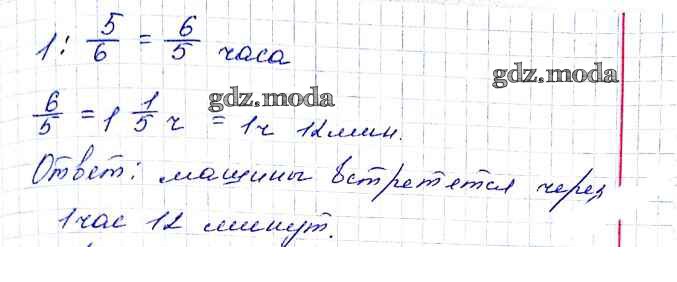 1 : 5/6 = 6/5 часа
gdz.moda
6/5 = 1 1/5 ч = 1ч 12 мин.
gdz.moda
Ответ: машины встретятся через
1 час 12 минут.